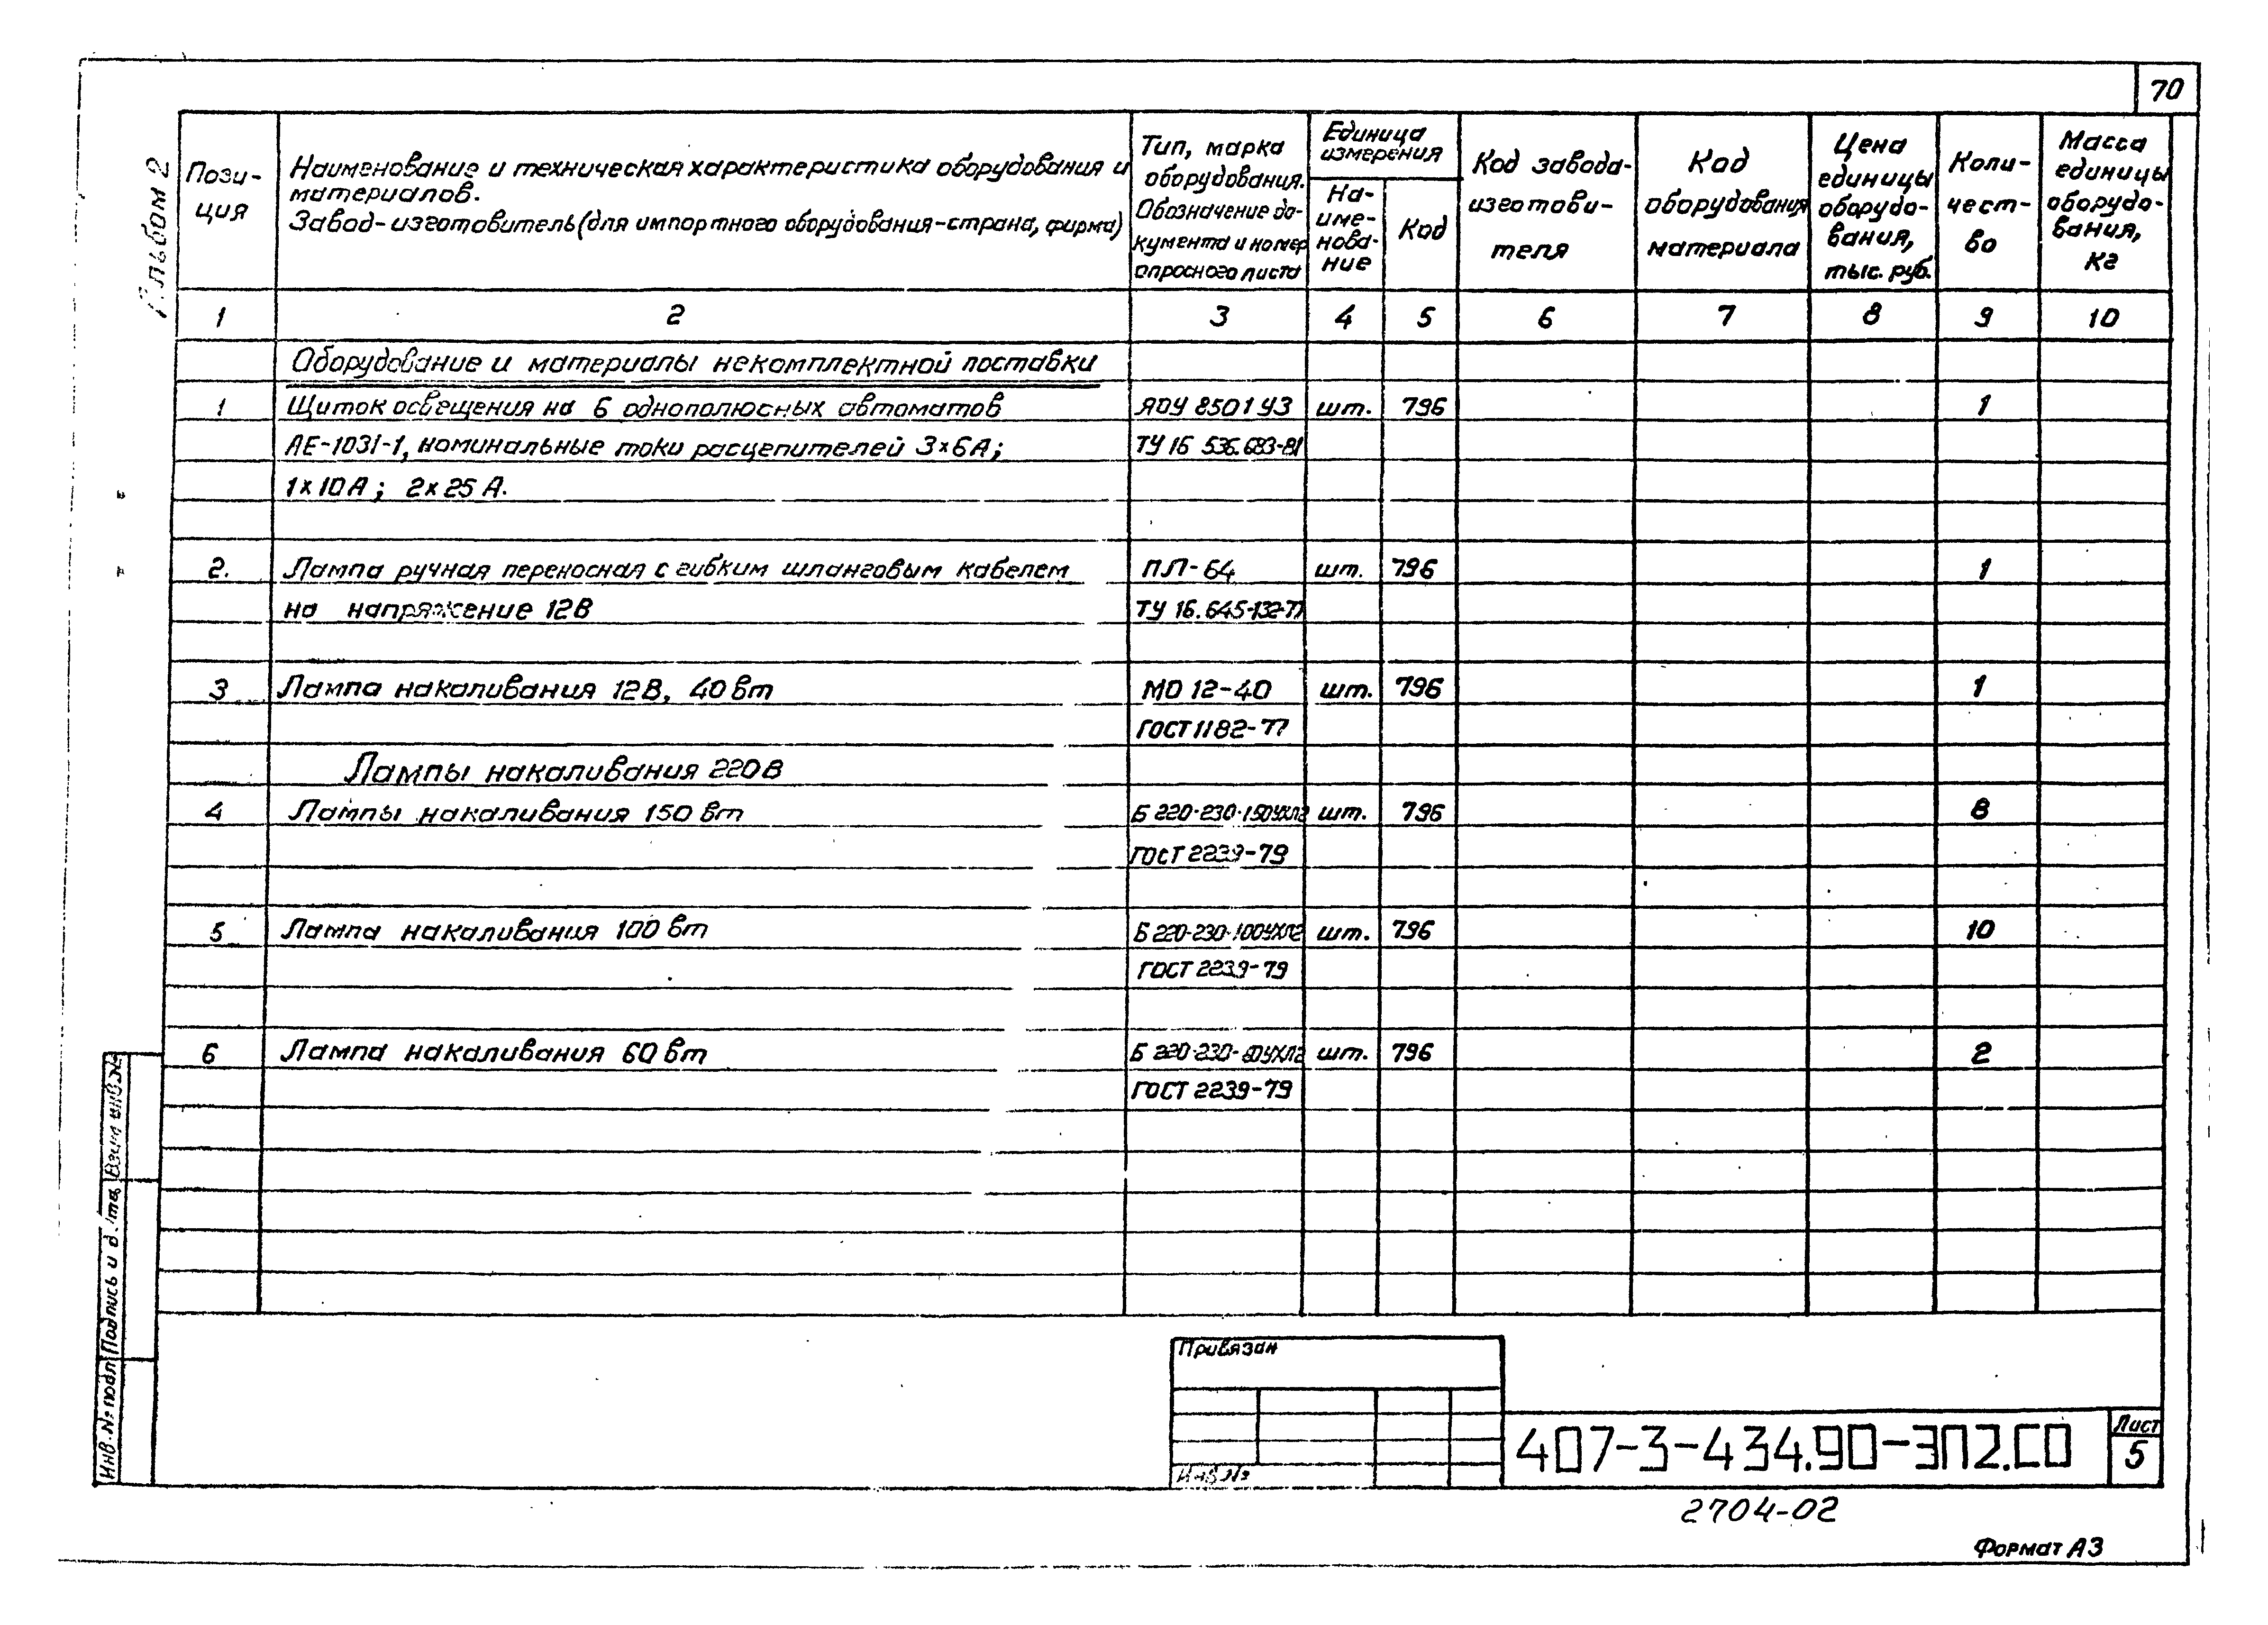 70
Альбом 2
Пози-
ция
Наименование и техническая характеристика оборудования и
материалов.
Завод-изготовитель (для импортного оборудования-страна, фирма)
Тип, марка
оборудования.
Обозначение до-
кумента и номер
опросного листа
Единица
измерения
На-
име-
нова-
ние
Код
Код завода-
изготови-
теля
Код
оборудования
материала
Цена
единицы
оборудо-
вания,
тыс. руб.
Коли-
чест-
во
Масса
единицы
оборудо-
вания,
кг
1 2 3 4 5 6 7 8 9 10
Оборудование и материалы некомплектной поставки
1 Щиток освещения на 6 однополюсных автоматов ЯОУ 8501 У3 шт. 796 1
АЕ-1031-1, номинальные токи расцепителей 3×6А; ТУ 16 536.683-81
1×10А; 2×25А.
2. Лампа ручная переносная с гибким шланговым кабелем ПЛ-64 шт. 796 1
на напряжение 12В ТУ 16.645-132-77
3 Лампа накаливания 12В, 40вт МО 12-40 шт. 796 1
ГОСТ 1182-77
Лампы накаливания 220В
4 Лампы накаливания 150 вт Б 220-230-150УХЛ2 шт. 796 8
ГОСТ 2239-79
5 Лампа накаливания 100 вт Б 220-230-100УХЛ2 шт. 796 10
ГОСТ 2239-79
6 Лампа накаливания 60 вт Б 220-230-60УХЛ2 шт. 796 2
ГОСТ 2239-79
Взам инв №
Подпись и дата
Инв. № подл
Привязан
Инв №
407-3-434.90-ЭП2.СО
Лист
5
2704-02
Формат А3